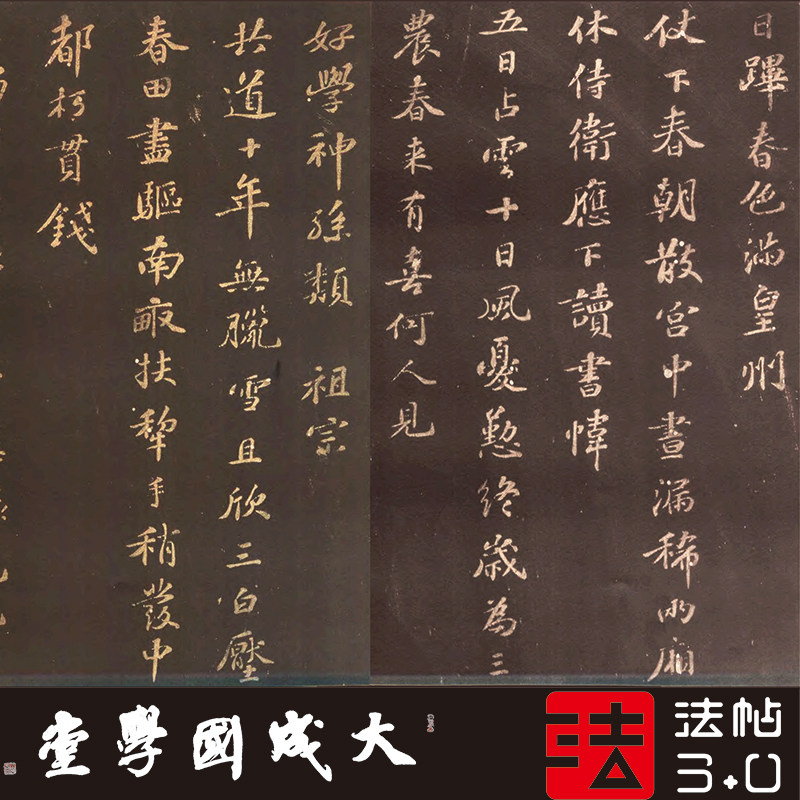 日蹕春色滿皇州
仗下春朝散宮中晝漏稀兩廂
休侍衛應下讀書幃
五日占雲十日風憂懃終歲為三
農春來有喜何人見
好學神孫類 祖宗
共道十年無臘雪且欣三白壓
春田盡驅南畝扶犂手稍發中
都朽貫錢
大成國學堂
法
法帖
3.0